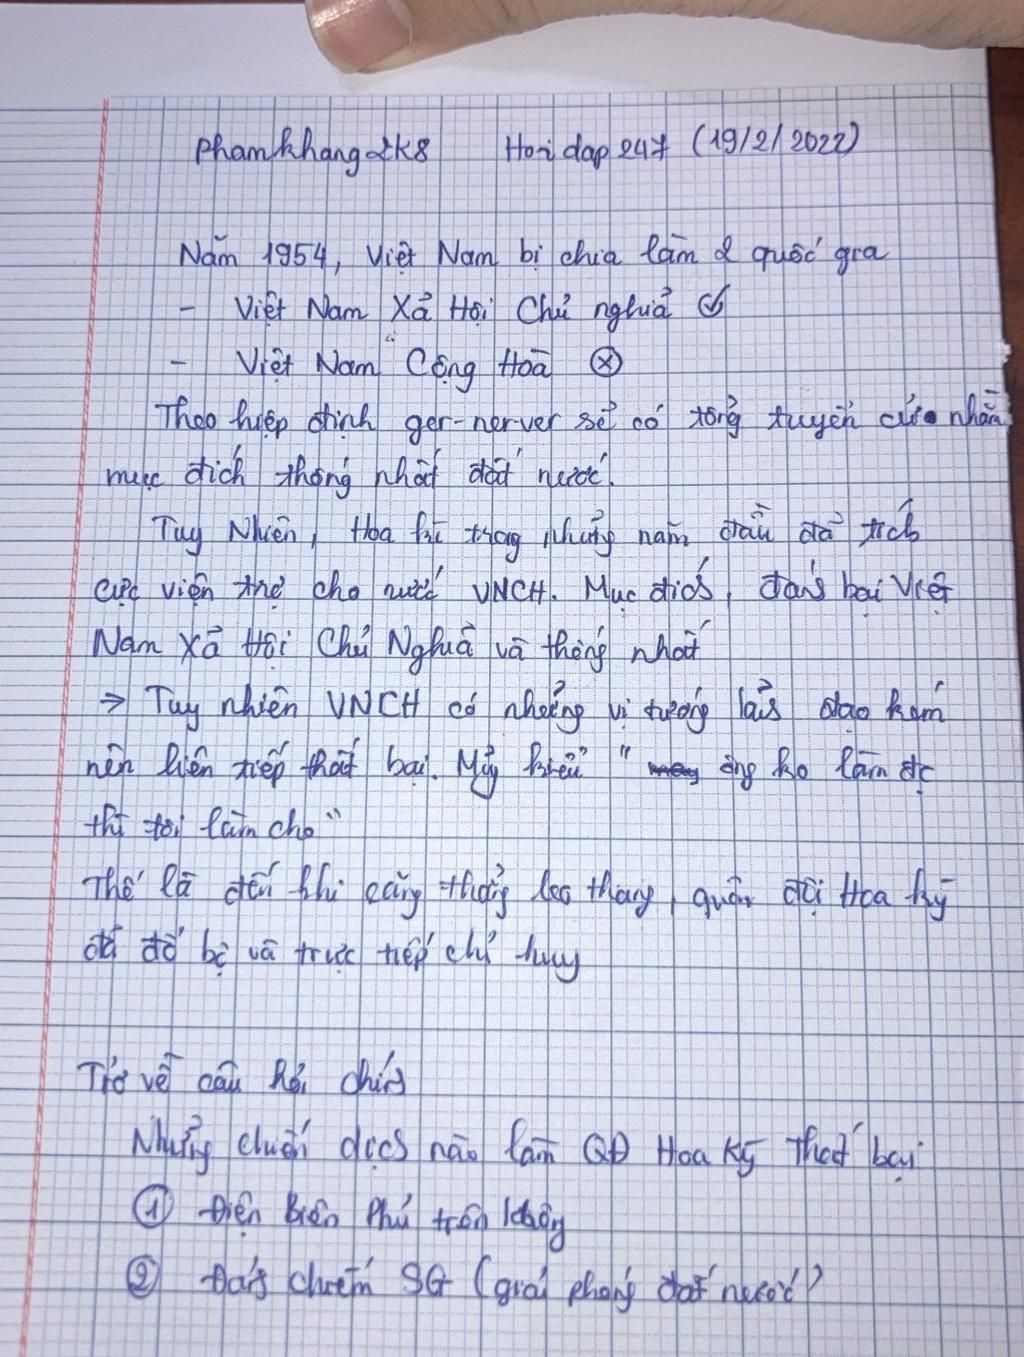 phamkhang2k8 Hoidap247 (19/2/2022)
Năm 1954, Việt Nam bị chia làm 2 quốc gia
- Việt Nam Xã Hội Chủ nghĩa
- Việt Nam Cộng Hoà
Theo hiệp định ger-ner-ver sẽ có tổng tuyển cử nhằm
mục đích thống nhất đất nước.
Tuy Nhiên, Hoa kì trong những năm đầu đã tích
cực viện trợ cho nước VNCH. Mục đích, đánh bại Việt
Nam Xã Hội Chủ Nghĩa và thống nhất
⇒ Tuy nhiên VNCH có những vị tướng lãnh đạo kém
nên liên tiếp thất bại. Mỹ kiểu " ông ko làm đc
thì tôi làm cho"
Thế là đến khi căng thẳng leo thang, quân đội Hoa kỳ
đã đổ bộ và trực tiếp chỉ huy
Trở về câu hỏi chính
Những chiến dịch nào làm QĐ Hoa Kỳ thất bại
① Điện Biên Phủ trên không
② Đánh chiếm SG (giải phóng đất nước)